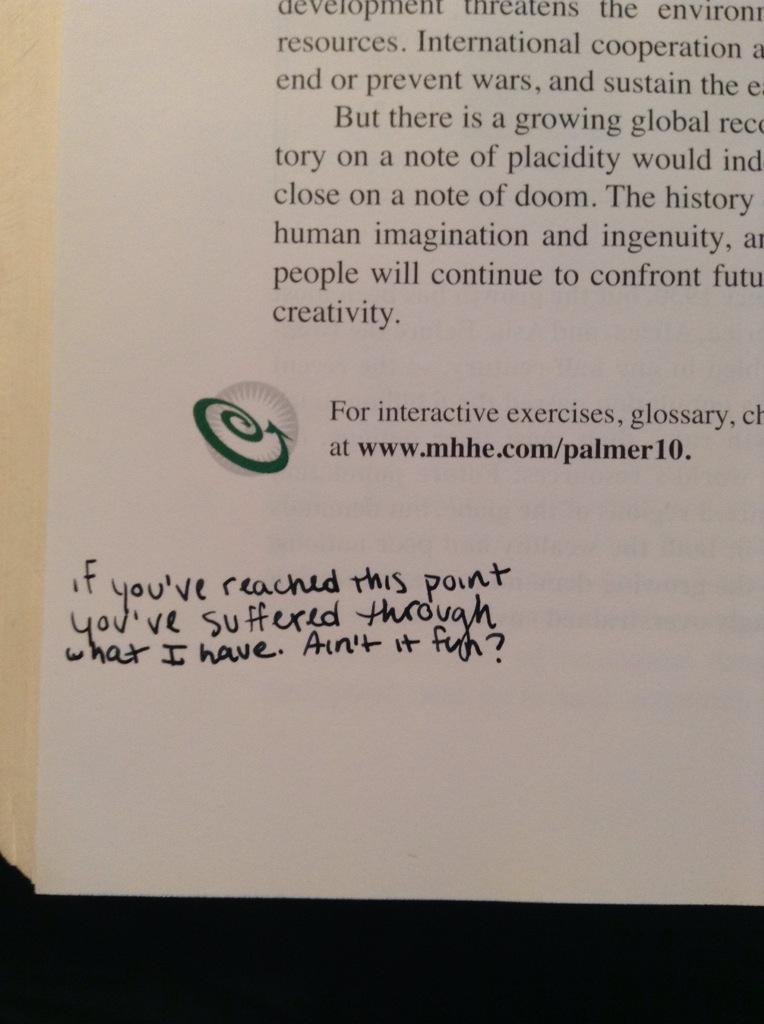 development threatens the environm
resources. International cooperation a
end or prevent wars, and sustain the ea
But there is a growing global reco
tory on a note of placidity would ind
close on a note of doom. The history
human imagination and ingenuity, an
people will continue to confront futu
creativity.
For interactive exercises, glossary, ch
at www.mhhe.com/palmer10.
if you've reached this point
you've suffered through
what I have. Ain't it fun?